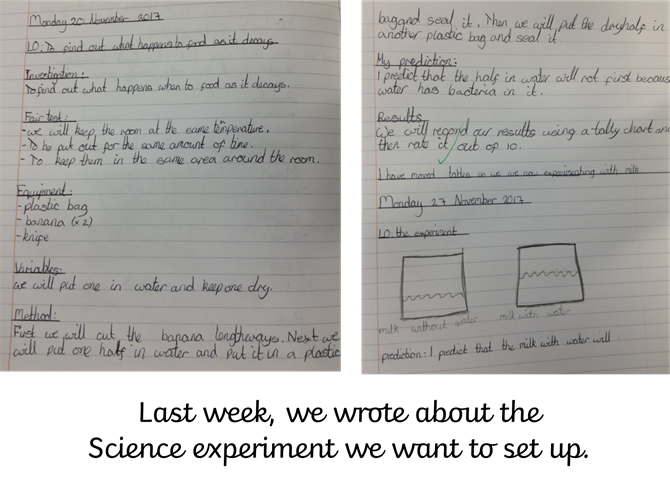 Monday 20 November 2017
LO: To find out what happens to food as it decays.
Investigation:
To find out what happens when to food as it decays.
Fair test:
-we will keep the room at the same temperature.
-To be put out for the same amount of time.
- To keep them in the same area around the room.
Equipment:
-plastic bag
-banana (x2)
-knife
Variables:
we will put one in water and keep one dry.
Method:
First we will cut the banana lengthways. Next we
will put one half in water and put it in a plastic
bag and seal it. Then we will put the dry half in
another plastic bag and seal it.
My prediction:
I predict that the half in water will rot first because
water has bacteria in it.
Results
We will record our results using a tally chart and
then rate it out of 10.
I have moved tables so we are now experimenting with milk
Monday 27 November 2017
LO: the experiment
milk without water
milk with water
prediction: I predict that the milk with water will
Last week, we wrote about the
Science experiment we want to set up.